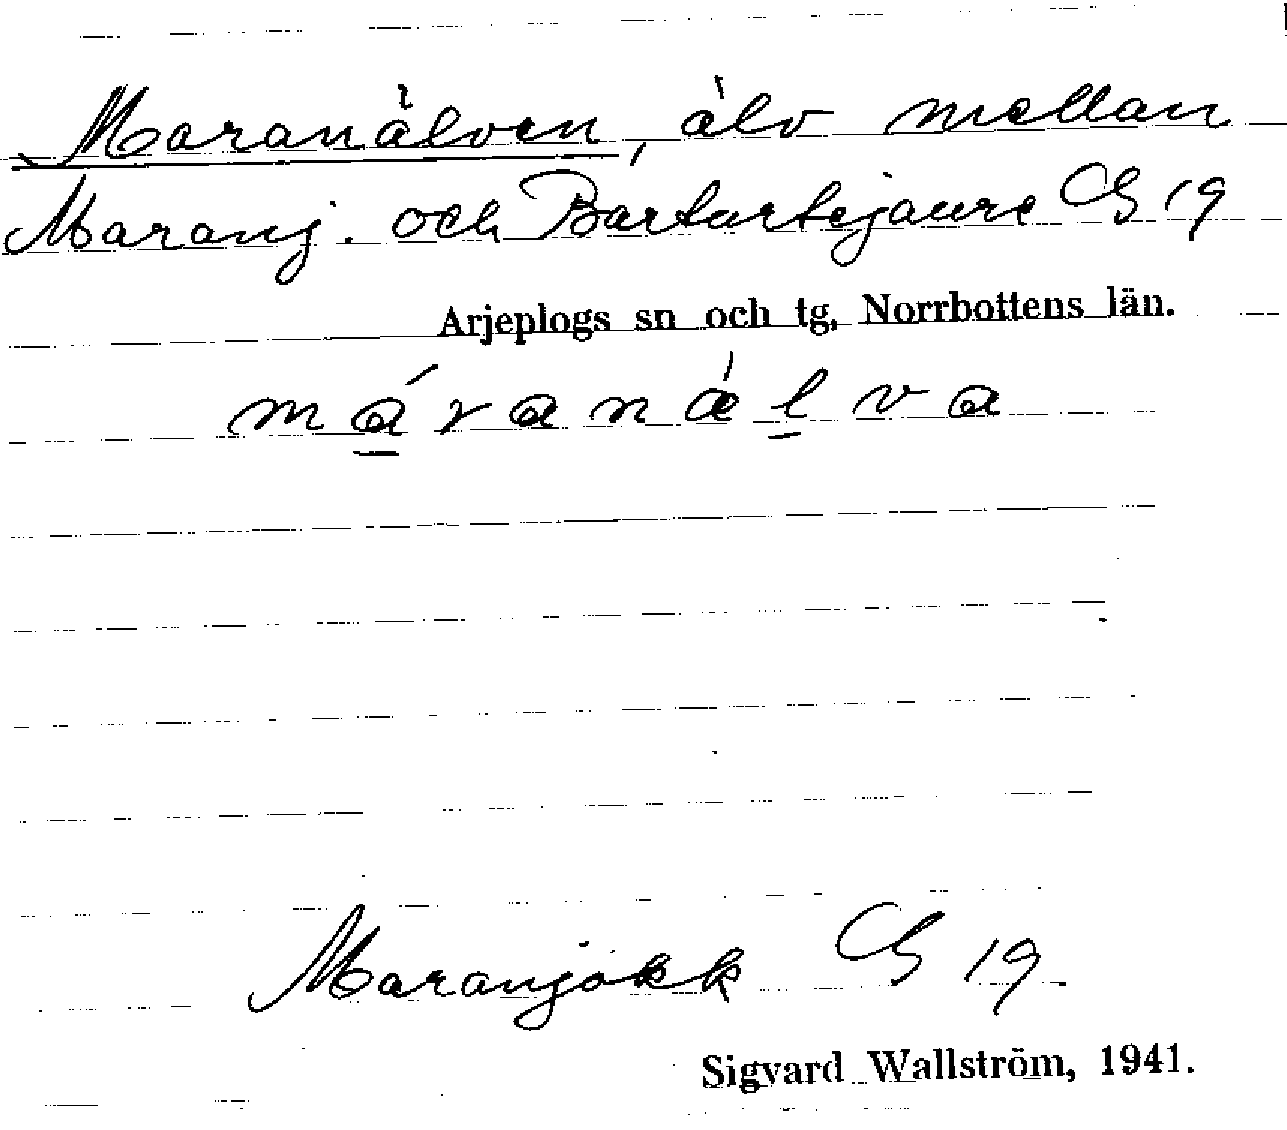 Maranälven, älv mellan
Maranj. och Bartartejaure G 19
Arjeplogs sn och tg, Norrbottens län.
máranälva
Maranjåkk G 19
Sigvard Wallström, 1941.